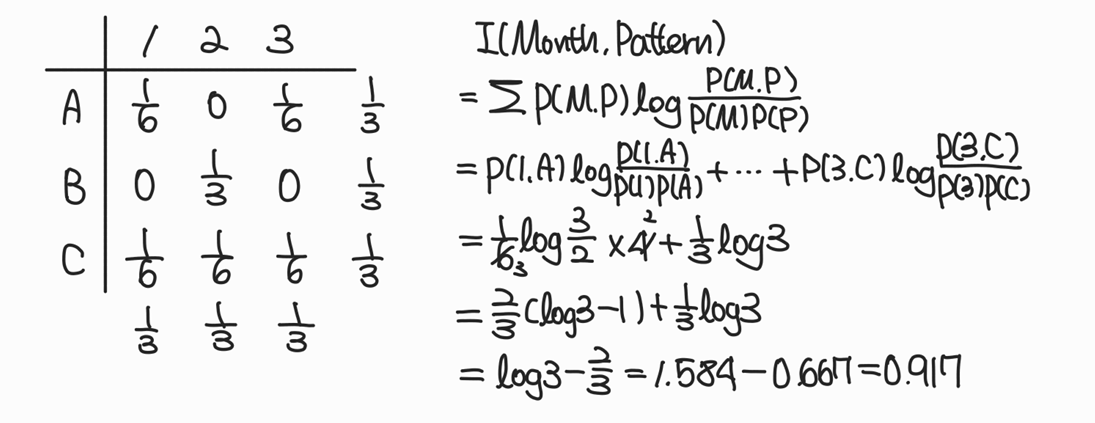 1 2 3
A 1/6 0 1/6 1/3
B 0 1/3 0 1/3
C 1/6 1/6 1/6 1/3
1/3 1/3 1/3
I(Month, Pattern)
= ∑ P(M.P) log P(M.P)/P(M)P(P)
= P(1.A) log P(1.A)/P(1)P(A) + ⋯ + P(3.C) log P(3.C)/P(3)P(C)
= 1/6 3 log 3/2 × 4 2 + 1/3 log3
= 2/3 (log3 − 1) + 1/3 log3
= log3 − 2/3 = 1.584 − 0.667 = 0.917